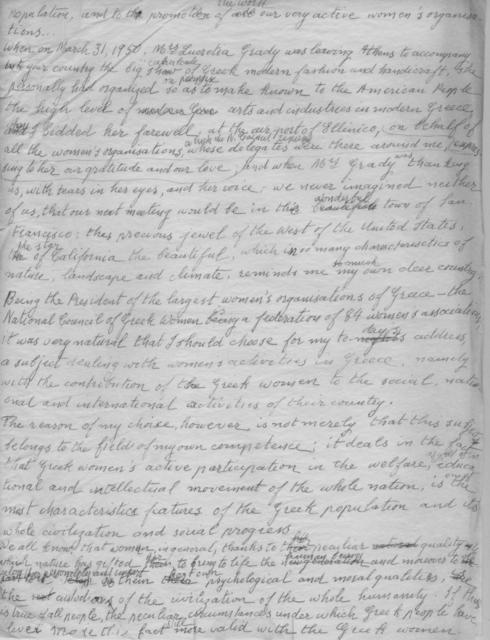 the work
population, and to the promotion of all our very active women's organisa-
tions...
When on March 31, 1950, Mrs Lucretia Grady was leaving Athens to accompany
to your country the big show of Greek modern fashion and handicraft, she
personally had organised on purpose so as to make known to the American People
the high level of modern arts and industries in modern Greece
and I bedded her farewell, at the air port of Ellinico, on behalf of
all the women's organisations, whose delegates were there around me, expres-
sing to her our gratitude and our love, and when Mrs Grady was thanking
us, with tears in her eyes, and her voice, we never imagined neither
of us, that our next meeting would be in this wonderful town of San
Francisco: this precious jewel of the West of the United States,
the star of California the beautiful, which in so many characteristics of
nature, landscape and climate, reminds me so much my own deer country.
Being the President of the largest women's organisations of Greece – the
National Council of Greek Women being a federation of 84 women's associations,
it was very natural that I should choose for my to-day's address,
a subject dealing with women's activities in Greece, namely
with the contribution of the Greek women to the social, nati-
onal and international activities of their country.
The reason of my choise, however is not merely that this subject
belongs to the field of my own competence; it deals in the fact
that Greek women's active participation in the welfare, educa-
tional and intellectual movement of the whole nation, is the
most characteristic features of the Greek population and its
whole civilization and social progress.
We all know that women, in general, thanks to her peculiar quality
which nature has gifted her to bring to life the human beings and moreover to
her own psychological and moral qualities, are
the custodians of the civilization of the whole humanity. If this
is true of all people, the peculiar circumstances under which Greek people have
lived make it in fact more valid with the Greek women.